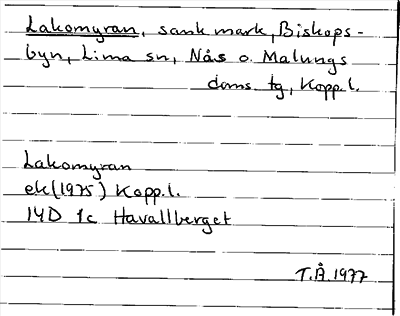 Lakomyran, sank mark, Biskops-
byn, Lima sn, Nås o. Malungs
doms. tg, Kopp.l.
Lakomyran
ek(1975) Kopp.l.
14D 1c Havallberget
T.Å.1977